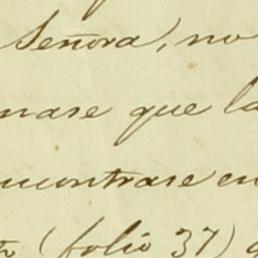 Señora, no
nase que la
ncontrase en
(folio 37)